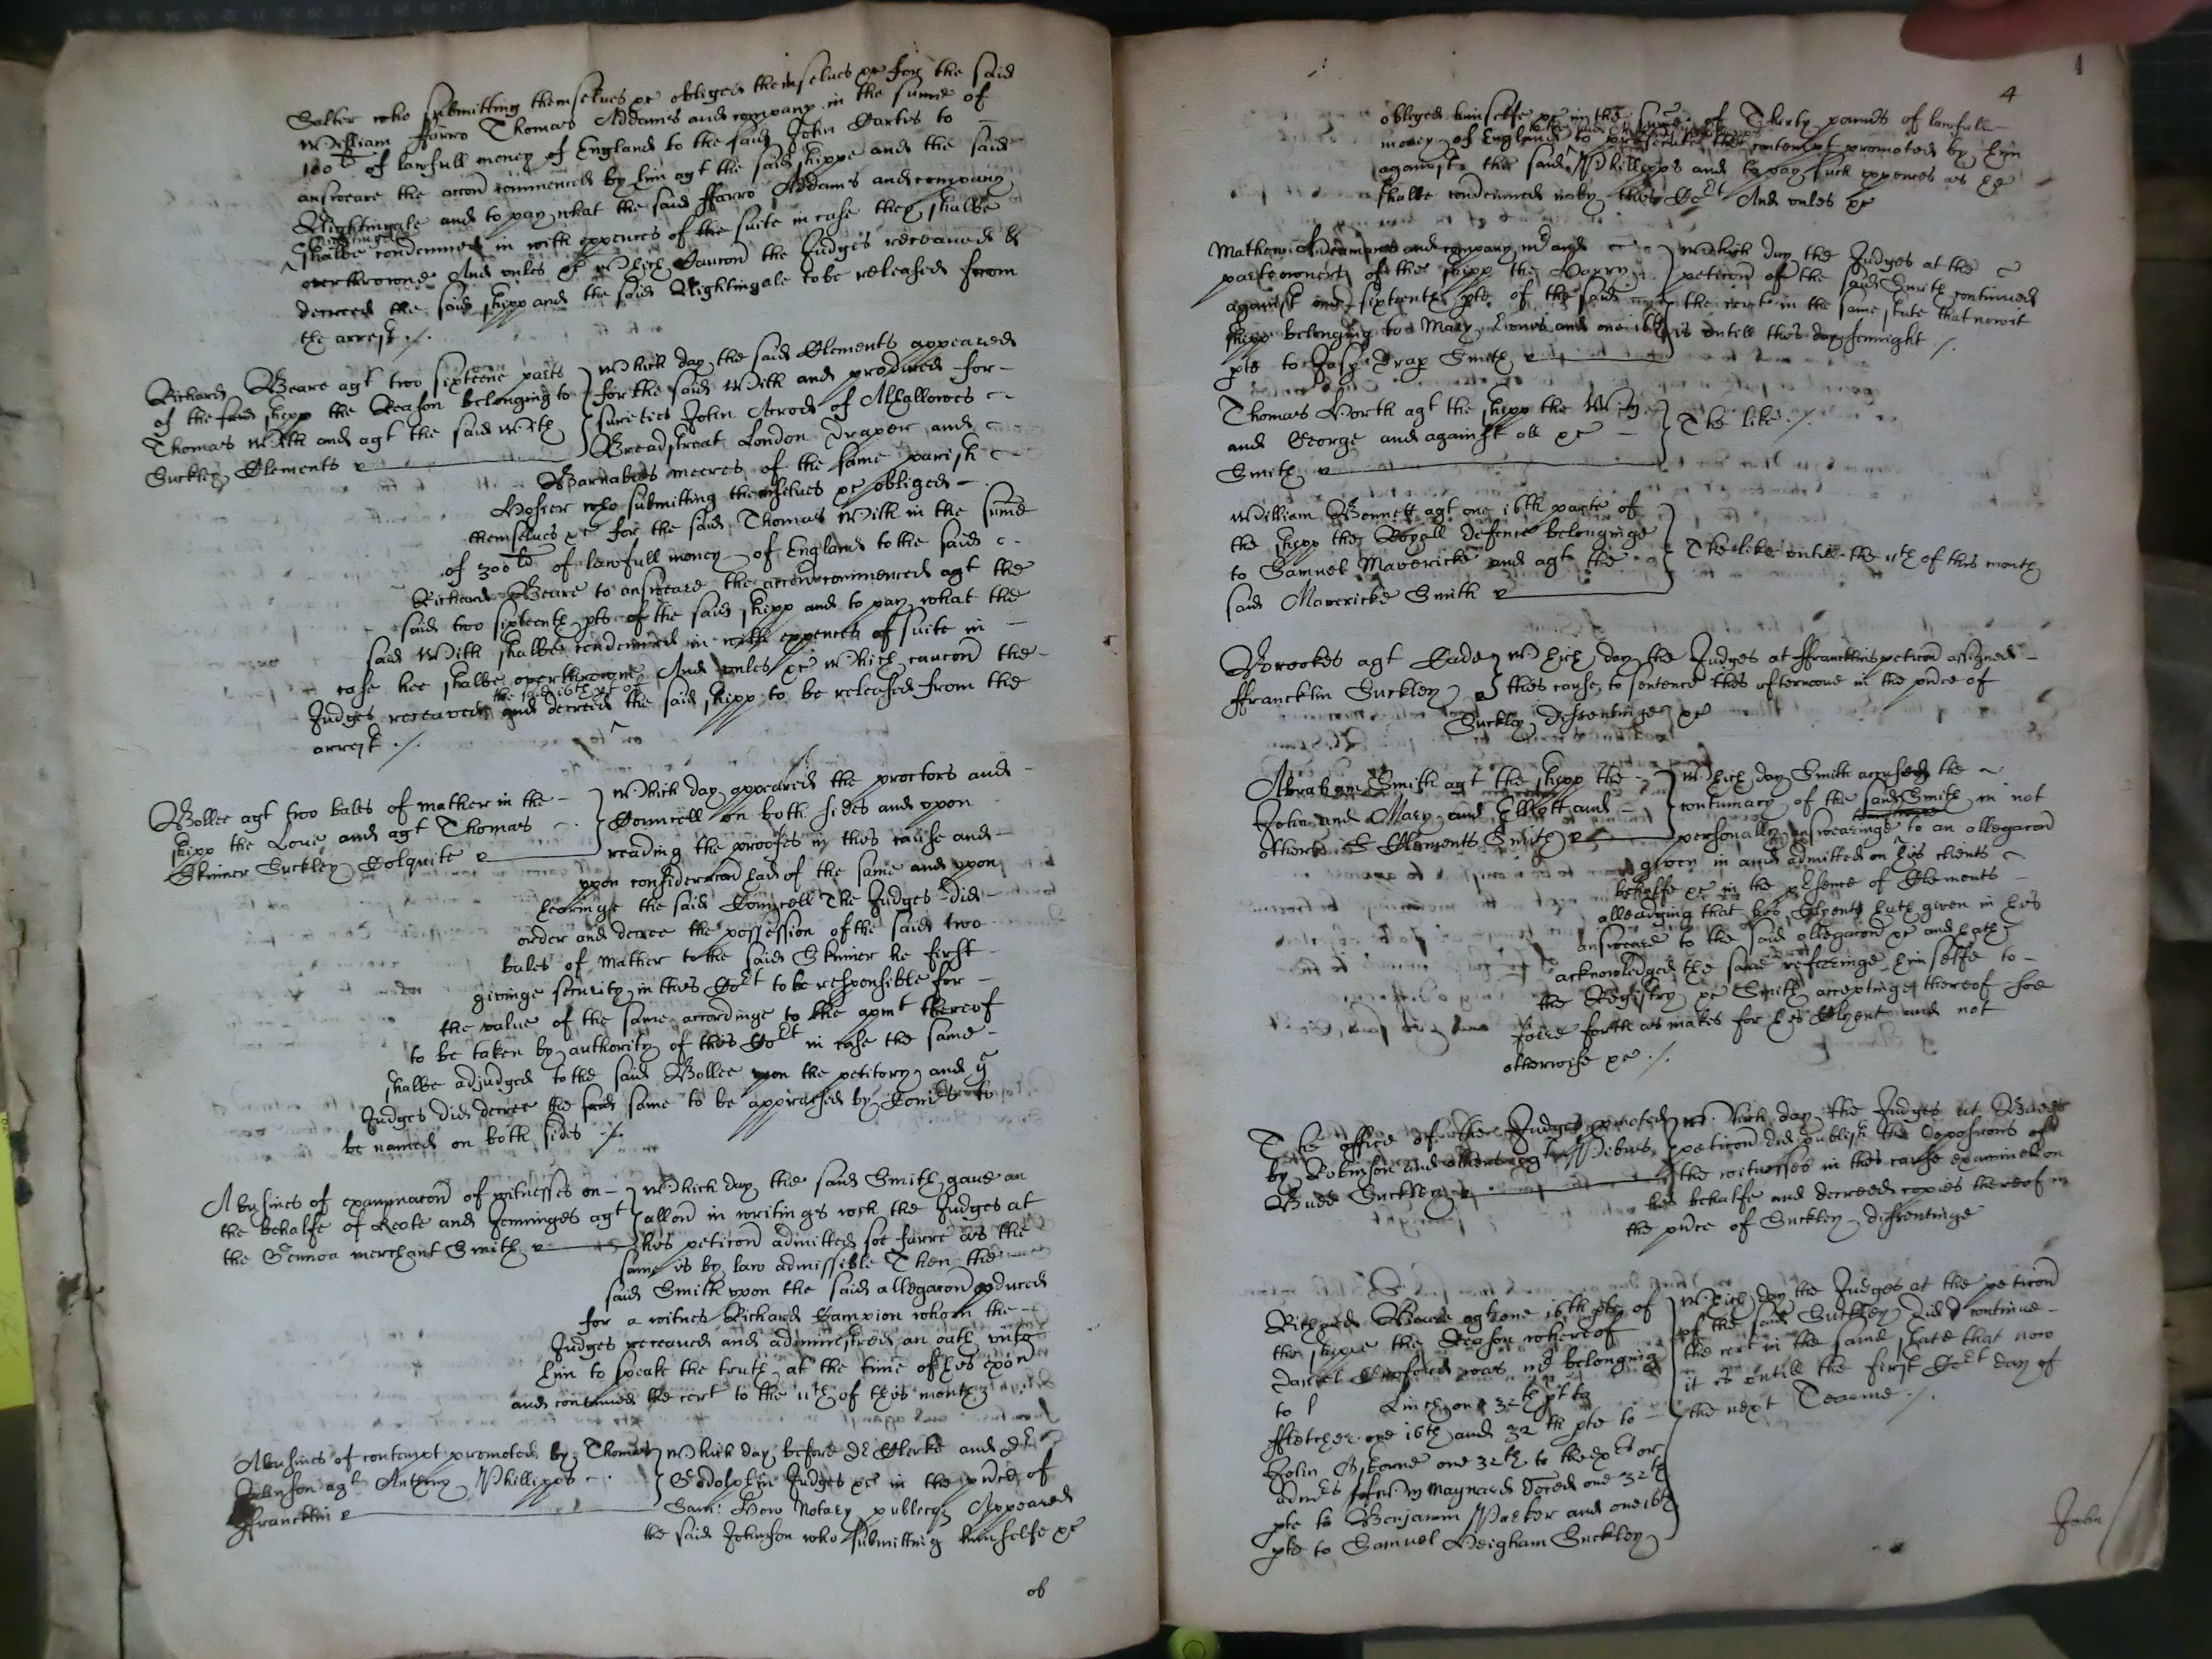 Salter who submitting themselves &c obliged themselves &c for the said
William ffarro Thomas Addams and company in the summe of
100 li of lawfull money of England to the said John Carter to
answeare the accon commenced by him agt the said shippe and the said
Nightingale and to pay what the said ffarro Addams and company
Nightingale
shalbe condemned in with expences of the suite in case they shalbe
overthrowne And unles &c Which Caucon the Judges receaved &
decreed the said shipp and the said Nightingale to be released from
the arrest ./.
Richard Beare agt two sixteene parts
of the said shipp the Reason belonging to
Thomas Wilk and agt the said Wilk
Suckley Clements
Which day the said Clements appeared
for the said Wilk and produced for
sureties John Acrod of Alhallowes
Breadstreat London draper and
Barnabas meeres of the same parish
Hosier who submitting themselves &c obliged
themselves &c for the said Thomas Wilk in the summe
of 300 li of lawfull money of England to the said
Richard Beare to answeare the accon commenced agt the
said two sixteenth pts of the said shipp and to pay what the
said Wilk shalbe condemned in with expences of suite in
case hee shalbe overthrowne And unles &c Which caucon the
the said 16th pt of
Judges receaved and decreed the said shipp to be released from the
arrest ./.
Bollee agt two bales of mather in the
shipp the Love and agt Thomas
Skinner Suckley Colquite
Which day appeared the proctors and
Councell on both sides and upon
reading the proofes in this cause and
upon consideracon had of the same and upon
hearinge the said Councell The Judges did
order and decree the possession of the said two
bales of mather to the said Skinner he first
givinge security in this Cort to be responsible for
the value of the same accordinge to the apmt thereof
to be taken by authority of this Cort in case the same
shalbe adjudged to the said Bollee upon the petitory and ye
Judges did decree the said same to be appraised by Comrs to
be named on both sides ./.
A busines of examinacon of witnesses on
the behalfe of Rexte and Jenninges agt
the Gennoa merchant Smith
Which day the said Smith gave an
allon in writinges wch the Judges at
his peticon admitted soe farre as the
same is by law admissible Then the
said Smith upon the said allegacon produced
for a witnes Richard Campion whom the
Judges receaved and administred an oath unto
him to speake the truth at the time of his exon
and continued the cert to the 11th of this month
A busines of contempt promoted by Thomas
Johnson agt Anthony Phillipps
ffrancklin
Which day before Dr Clerke and Dr
Godolphin Judges &c in the pnce of
Sam: How Notary publicq Appeared
the said Johnson who submitting himselfe &c
ob
4
obliged himselfe &c in the summe of Thirty pounds of lawfull
money of England to prosecute the contempt promoted by him
against the said Phillipps and to pay such expences as he
shalbe condemned in by this Cort And unles &c
Mathew Andrewes and company and
parte owners of the shipp the Harry
against one sixteenth pte of the said
shipp belonging to Mary Lewis and one 16th
pte to Jasp Drap Smith
Which day the Judges at the
peticon of the said Smith continued
the cert in the same state that now it
is untill this day sennight ./.
Thomas North agt the shipp the Wm
and George and against all &c
Smith
The like ./.
William Bennett agt one 16th parte of
the shipp the Royall defence belonginge
to Samuel Mavericke and agt the
said Mavericke Smith
The like untill the 11th of this month
Brookes agt Eade
ffrancklin Suckley
Which day the Judges at ffrancklins peticon assigned
this cause to sentence this afternoone in the pnce of
Suckley dissentinge &c
Abraham Smith agt the shipp the
John and Mary and Elliott and
others Clements Smith
Which day Smith accused the
contumacy of the said Smith in not
personally answearinge to an allegacon
given in and admitted on his clients
behalfe &c in the presence of Clements
alleadging that his Clyent hath given in his
answeare to the said allegacon &c and hath
acknowledged the same referringe himselfe to
the Registry &c Smith acceptinge thereof soe
farre forth as makes for his Clyent and not
otherwise &c ./.
The office of the Judges promoted
by Robinson and others agt Pibus
Budd Suckley
Which day the Judges at Budds
peticon did publish the deposicons of
the witnesses in this cause examined on
his behalfe and decreed copies thereof in
the pnce of Suckley dissentinge
Richard Beare agt one 16th pte of
the shipp the Reason whereof
Daniel was belonging
to Linch one 32th pt to
ffletcher one 16th and 32th pte to
John Osborne one 32th to the exrs or
admrs of Maynard deced one 32th
pte to Benjamin Parker and one 16th
pte to Samuel Heigham Suckley
Which day the Judges at the peticon
of the said Suckley did continue
the cert in the same state that now
it is untill the first Cort day of
the next Tearme ./.
John